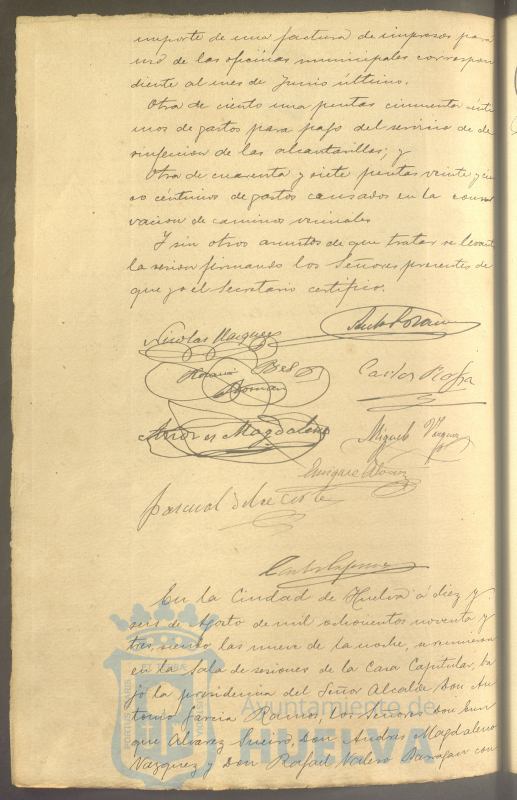 importe de una factura de impresos para
uso de las oficinas municipales correspon
diente al mes de Junio último.
Otra de ciento una pesetas cincuenta cénti
mos de gastos para pago del servicio de de
sinfección de las alcantarillas; y
Otra de cuarenta y siete pesetas veinte y cin
co céntimos de gastos causados en la conser
vación de caminos vecinales
Y sin otros asuntos de que tratar se levantó
la sesión firmando los Señores presentes de
que yo el Secretario certifico.
Nicolas Vazquez
Horacio Bel
Roman
Carlos
Andres Magdaleno
Miguel Vazquez
Enrique Alvarez
Pascual
En la Ciudad de Huelva á diez y
seis de Agosto de mil ochocientos noventa y
tres, siendo las nueve de la noche, se reunieron
en la Sala de sesiones de la Casa Capitular, ba
jo la presidencia del Señor Alcalde Don An
tonio Garcia Ramos, los Señores Don Enri
que Alvarez Sueiro, Don Andres Magdaleno
Vazquez y Don Rafael Valero Barragan con
Ayuntamiento de
HUELVA